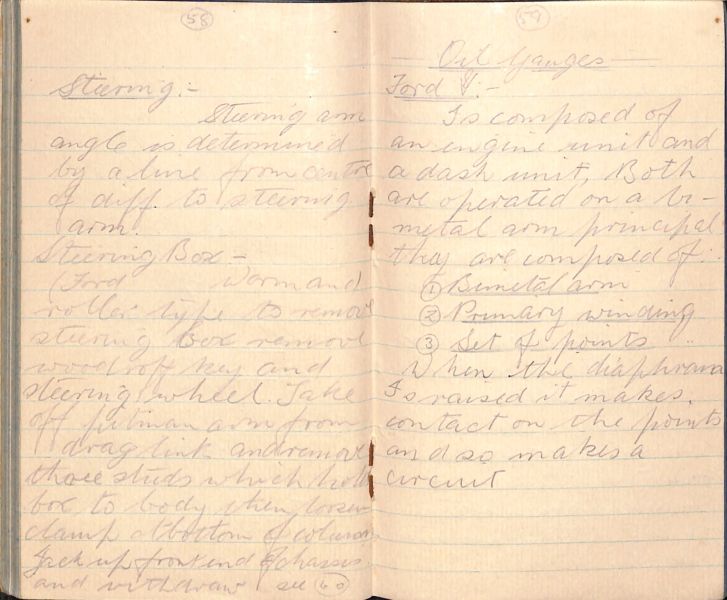 58
Steering :-
Steering arm
angle is determined
by a line from centre
of diff. to steering
arm.
Steering Box -
(Ford Worm and
roller type to remove
steering box remove
woodroff key and
steering wheel. Take
off pitman arm from
drag link and remove
those studs which hold
box to body then loosen
clamp at bottom of column
Jack up front end of chassis
and withdraw see 60
59
Oil Gauges
Ford V8 :-
Is composed of
an engine unit and
a dash unit, Both
are operated on a bi-
metal arm principal
they are composed of:
① Bimetal arm
② Primary winding
③ Set of points
When the diaphram
Is raised it makes
contact on the points
and so makes a
circuit